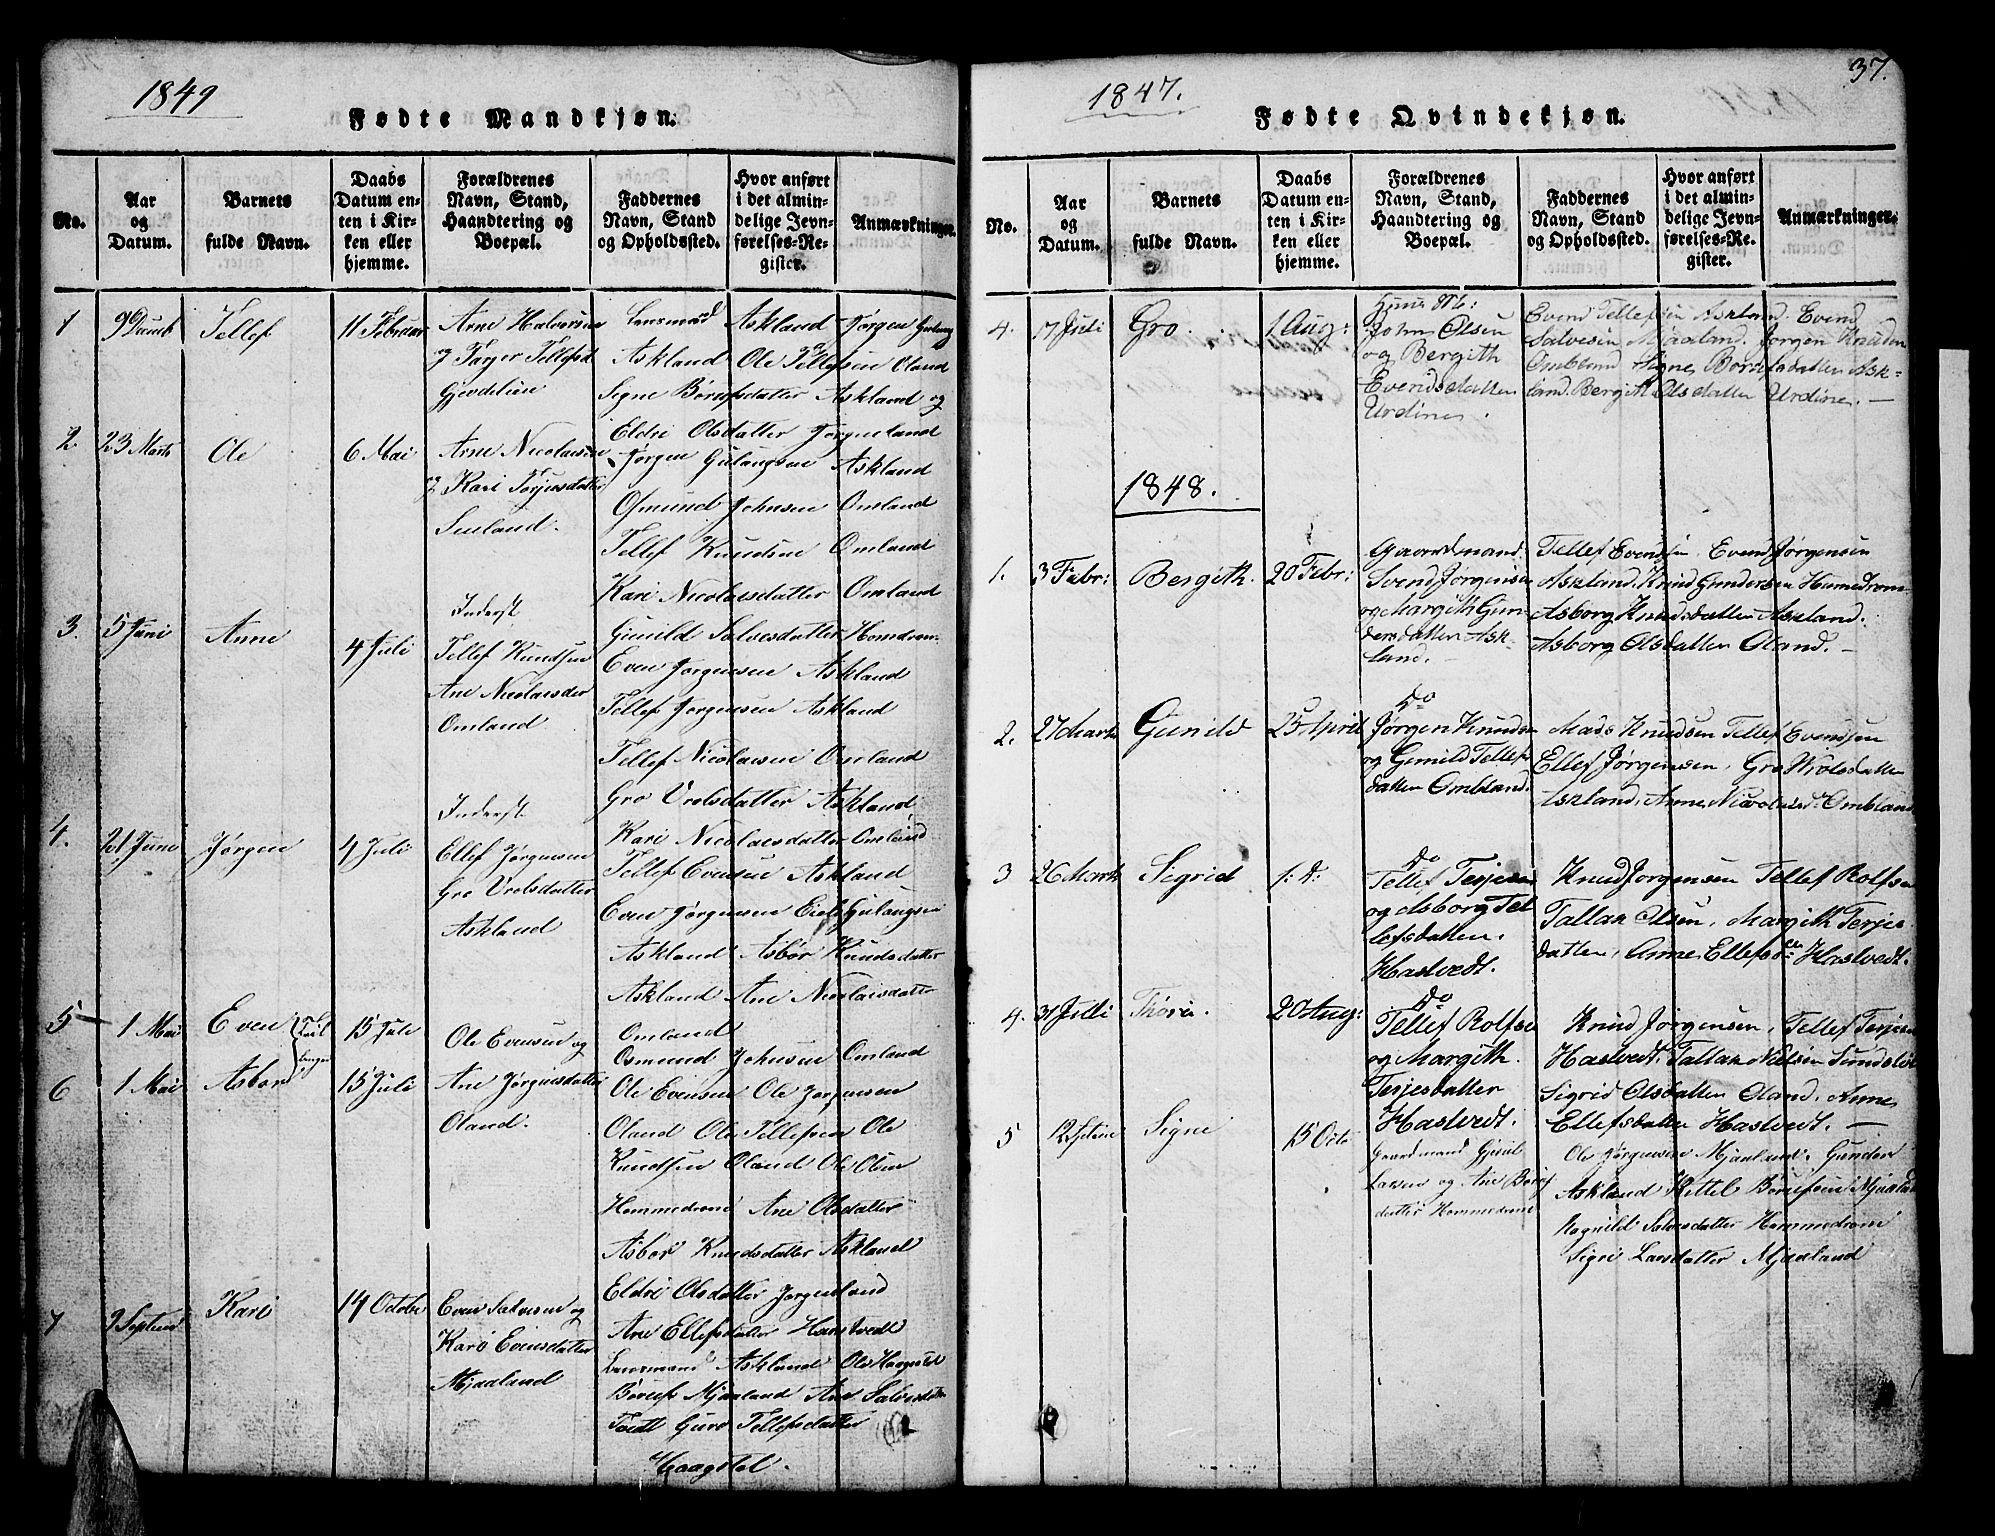 1849
Fødte Mandkjøn.
No.
Aar
og
Datum.
Barnets
fulde Navn.
Daabs
Datum en-
ten i Kir-
ken eller
hjemme.
Forældrenes
Navn, Stand,
Haandtering og
Boepæl.
Faddernes
Navn, Stand
og Opholdssted.
Hvor anført
i det almin-
delige Jevn-
førelses-Re-
gister.
Anmærkninger.
1
9 Decmb
Tellef
11 Februar
Arne Halvorsen
og Targer Tellefsd
Gjevdelien
Lensmand Askland Jørgen
Askland Ole Tellefsen Oland
Signe Børufsdatter Askland og
Eldri Olsdatter Jørgenland
2.
23 Marts
Ole
6 Mai
Arne Nicolaisen
og Kari Torjusdatter
Senland.
Jørgen Gulangsen Askland
Osmund Johnsen Omland
Tellef Knudsen Omland
Kari Nicolaisdatter Omland
Gunild Salvesdatter Homdrom
3.
5 Juni
Anne
4 Juli
Inderst
Tellef Knudsen
Ane Nicolaisder
Omland
Even Jørgensen Askland
Tellef Jørgensen Askland
Tellef Nicolaisen Omland
Gro Vrolsdatter Askland
Kari Nicolaisdatter Omland
4.
21 June
Jørgen
4 Juli
Inderst
Ellef Jørgensen
Gro Vrolsdatter
Askland
Tellef Evensen Askland
Even Jørgensen Eielf Gulangsen
Askland Asbor Knudsdatter
Askland Ane Nicolaisdatter
Omland
5
1 Mai
Even
Tvil
linger
15 Juli
Ole Evensen og
Ane Jørgensdatter
Oland.
6
1 Mai
Asbor
15 Juli
Osmund Johnsen Omland
Ole Evensen Ole Jorgensen
Oland Ole Tellefsen Ole
Knudsen Oland Ole Olsen
Hommedrom Ane Olsdatter
Asbor Knudsdatter Askland
Eldri Olsdatter Jorgenland
Ane Ellefsdatter Hastvedt
7
9 Septemb
Kari
14 October
Even Salvesen og
Kari Evensdatter
Mjaaland
Lensmand Askland Ole
Børuf Mjaaland Ane Salvesdatter
Tvedt Guro Tellefsdatter
Haagstol.
37.
1847.
Fødte Qvindekjøn.
No.
Aar
og
Datum.
Barnets
fulde Navn.
Daabs
Datum en-
ten i Kir-
ken eller
hjemme.
Forældrenes
Navn, Stand,
Haandtering og
Boepæl.
Faddernes
Navn, Stand
og Opholdssted.
Hvor anført
i det almin-
delige Jevn-
førelses-Re-
gister.
Anmærkninger.
4.
7 Juli
Gro.
1 Aug:
John Olsen
og Bergith
Evendsdatter
Urdine.
Evend Tellefsen Askland. Evend
Salvesen Mjaaland. Jørgen Knudsen
Ombland Signe Børufsdatter Ask-
land. Bergith Olsdatter Urdine. —
1848.
1.
3 Febr:
Bergith.
20 Febr:
Gaardmand
Svend Jørgensen
og Margith Gun-
dersdatter Ask-
land. —
Tellef Evendsen, Evend Jørgensen
Askland. Knud Gundersen Humedrom.
Asborg Knudsdatter Askland.
Asborg Olsdatter Oland. —
2.
27 Marts
Gunild
25 April
Do
Jørgen Knudsen
og Gunild Tellefs-
datter Ombland.
Mads Knudsen Tellef Evendsen
Ellef Jørgensen, Gro Wrolsdatter
Askland, Anne Nicolaisd. Ombland
3
26 Marts
Sigrid
1: d:
Do
Tellef Terjesen
og Asborg Tel
lefsdatter.
Hastvedt.
Knud Jørgensen Tellef Rolfsen
Tallak Olsen, Margith Terjes-
datter, Anne Ellefsdter Hastvedt.
4.
31 Julli
Thóre.
20 Aug:
Do
Tellef Rolfsen
og Margith.
Terjesdatter
Hastvedt.
Knud Jørgensen, Tellef Terjesen
Hastvedt. Tallak Nielsen
Sigrid Olsdatter Oland, Anne
Ellefsdatter Hastvedt. —
5
12 Septem
Signe
15 Octo
Gaardmand
Larsen og Ane Børufs
datter Hommedrom
Ole Jørgensen Mjaaland. Gunder
Askland Kittel Børufsen Mjaaland
Ragnild Salvesdatter Hommedrom
Signe Larsdatter Mjaaland